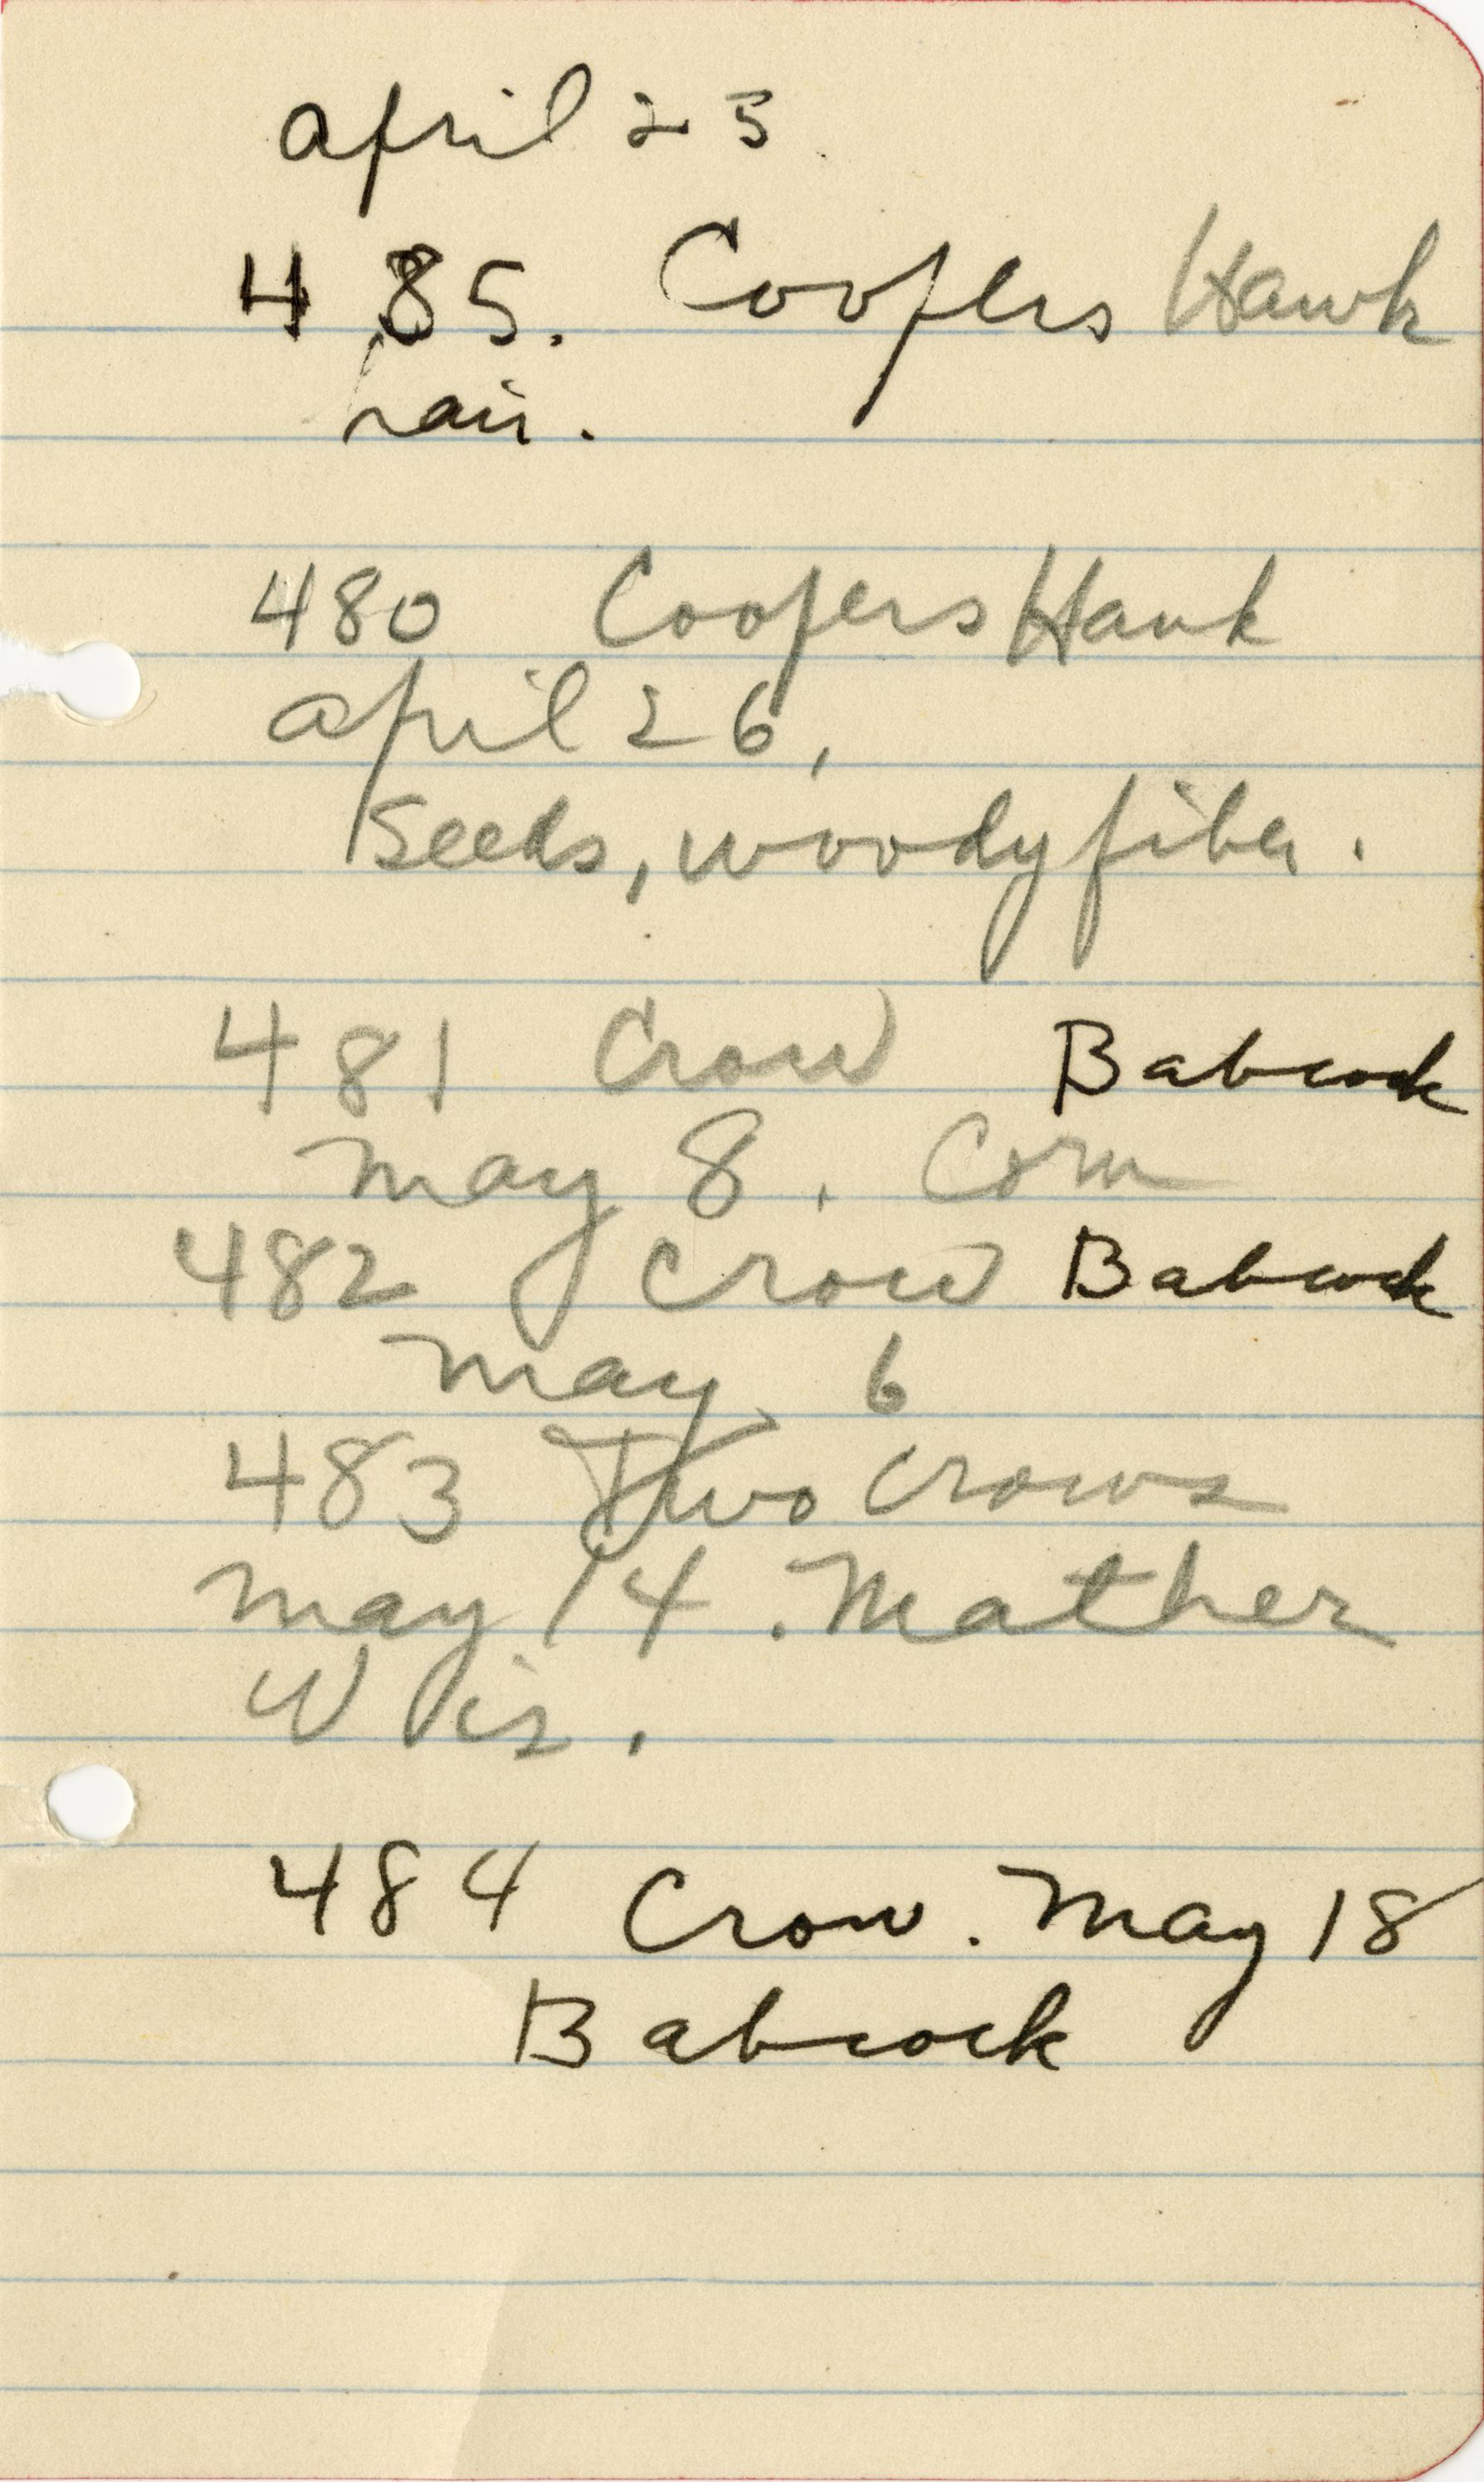 April 25
485. Coopers Hawk
hair.
480 Coopers Hawk
April 26,
Seeds, woody fiber.
481 Crow Babcock
May 8. Corn
482 Crow Babcock
May 6
483 Two Crows
May 14. Mather
Wis.
484 Crow. May 18
Babcock